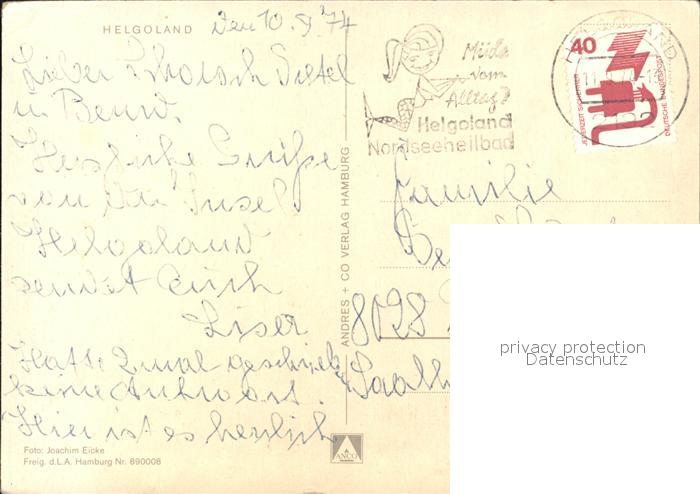 HELGOLAND
Den 10. 9. 74
Lieber
u
Herzliche Grüße
von der Insel
Helgoland
sendet Euch
Liser
Hatte 2 mal geschrieb
keine Antwort.
Hier ist es herrlich
Foto: Joachim Eicke
Freig. d.L.A. Hamburg Nr. 890008
ANDRES + CO VERLAG HAMBURG
ANCO
Müde
vom
Alltag?
Helgoland
Nordseeheilbad
40
JEDERZEIT SICHERHEIT
DEUTSCHE BUNDESPOST
HELGOLAND
Familie
8028
privacy protection
Datenschutz